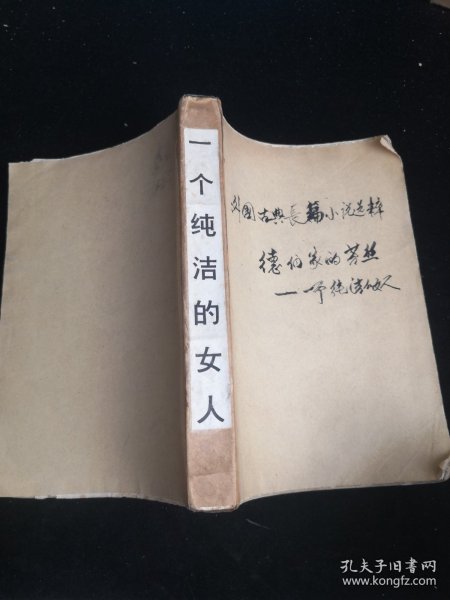 一个纯洁的女人
外国古典長篇小说选粹
德伯家的苔丝
一个纯洁女人
孔夫子旧书网
www.kongfz.com